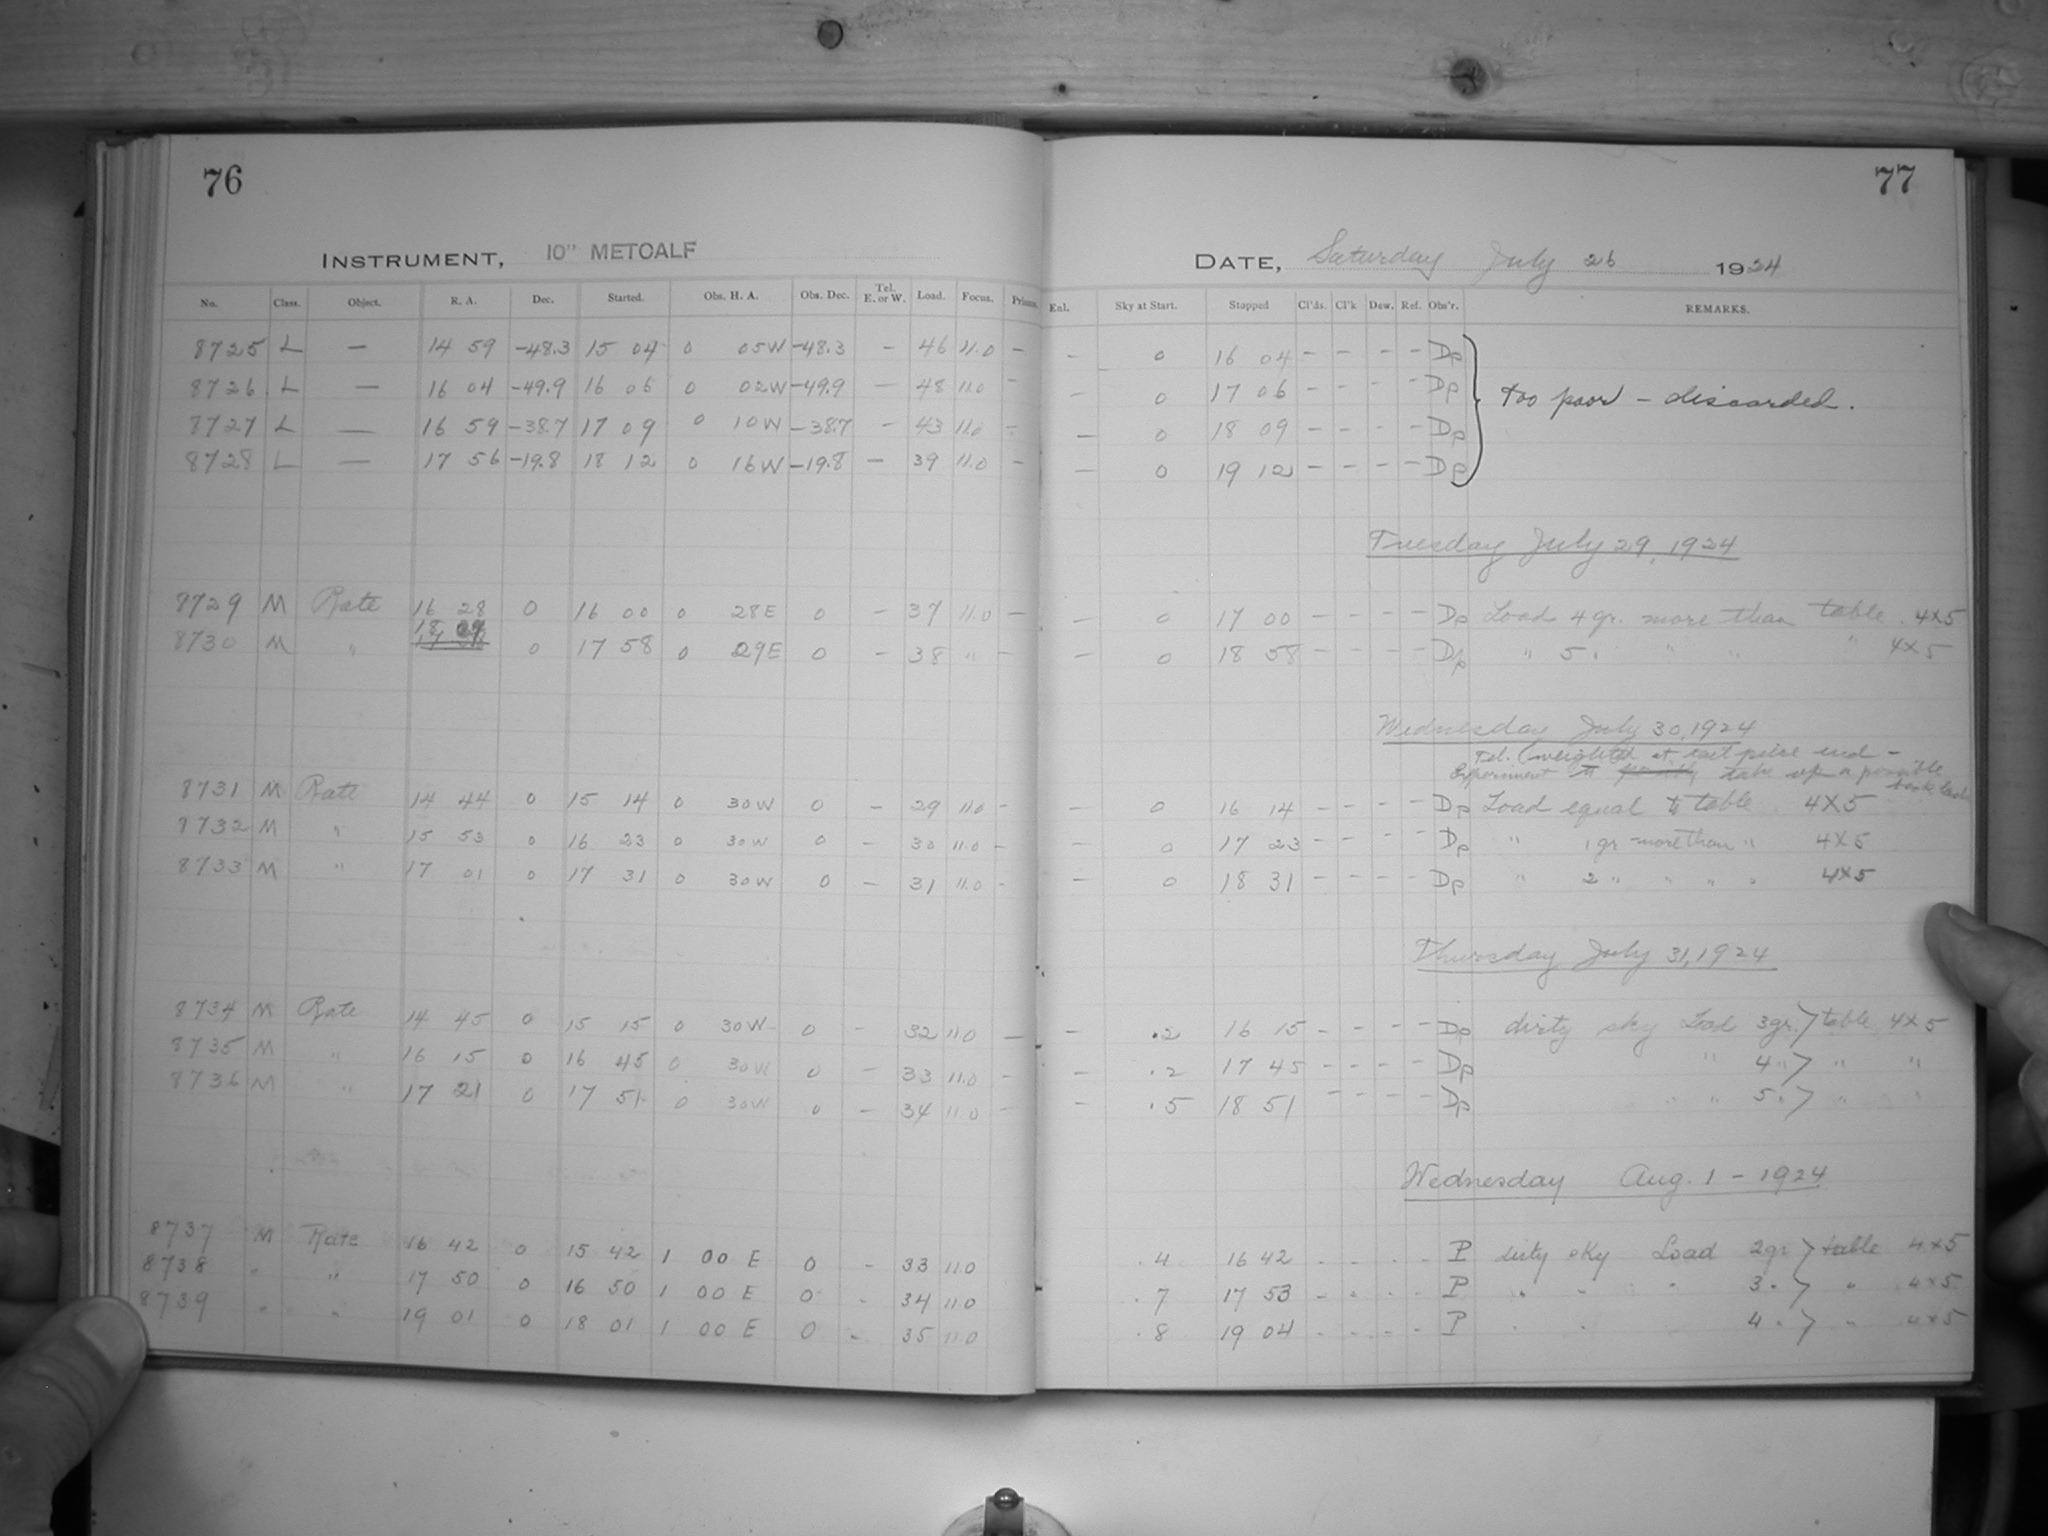 76
77
INSTRUMENT, 10" METCALF
DATE, Saturday July 26 1924
No. Class. Object. R. A. Dec. Started. Obs. H. A. Obs. Dec. Tel. E. or W. Load. Focus. Prisms. Enl. Sky at Start. Stopped Cl'ds. Cl'k Dew. Ref. Obs'r. REMARKS.
8725 L — 14 59 -48.3 15 04 0 05W -48.3 — 46 11.0 — — 0 16 04 — — — — Dp
8726 L — 16 04 -49.9 16 06 0 02W -49.9 — 48 11.0 — — 0 17 06 — — — — Dp too poor - discarded.
8727 L — 16 59 -38.7 17 09 0 10W -38.7 — 43 11.0 — — 0 18 09 — — — — Dp
8728 L — 17 56 -19.8 18 12 0 16W -19.8 — 39 11.0 — — 0 19 12 — — — — Dp
Tuesday July 29, 1924
8729 M Rate 16 28 0 16 00 0 28E 0 — 37 11.0 — — 0 17 00 — — — — Dp Load 4 gr. more than table. 4X5
8730 M " 18 27 0 17 58 0 29E 0 — 38 " — — 0 18 58 — — — — Dp " 5 " " " " 4X5
Wednesday July 30, 1924
Tel. weighted at east piece end —
Experiment to take up a possible
back lash
8731 M Rate 14 44 0 15 14 0 30W 0 — 29 11.0 — — 0 16 14 — — — — Dp Load equal to table. 4X5
8732 M " 15 53 0 16 23 0 30W 0 — 30 11.0 — — 0 17 23 — — — — Dp " 1 gr more than " 4X5
8733 M " 17 01 0 17 31 0 30W 0 — 31 11.0 — — 0 18 31 — — — — Dp " 2 " " " " 4X5
Thursday July 31, 1924
8734 M Rate 14 45 0 15 15 0 30W 0 — 32 11.0 — — .2 16 15 — — — — Dp dirty sky Load 3gr. > table 4X5
8735 M " 16 15 0 16 45 0 30W 0 — 33 11.0 — — .2 17 45 — — — — Dp " 4 " > " "
8736 M " 17 21 0 17 51 0 30W 0 — 34 11.0 — — .5 18 51 — — — — Dp " " 5 " > " "
Wednesday Aug. 1 - 1924
8737 M Rate 16 42 0 15 42 1 00 E 0 — 33 11.0 .4 16 42 — — — — P dirty sky Load 2gr > table 4X5
8738 " " 17 50 0 16 50 1 00 E 0 — 34 11.0 .7 17 53 — — — — P " " " 3 " > " 4X5
8739 " " 19 01 0 18 01 1 00 E 0 — 35 11.0 .8 19 04 — — — — P " " 4 " > " 4X5